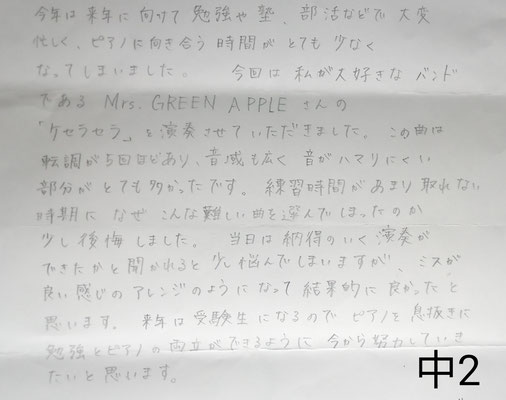 今年は来年に向けて勉強や塾、部活などで大変
忙しく、ピアノに向き合う時間がとても少なく
なってしまいました。 今回は私が大好きなバンド
である Mrs. GREEN APPLE さんの
「ケセラセラ」を演奏させていただきました。この曲は
転調が5回ほどあり、音域も広く音がハマりにくい
部分がとても多かったです。練習時間があまり取れない
時期になぜこんな難しい曲を選んでしまったのか
少し後悔しました。 当日は納得のいく演奏が
できたかと聞かれると少し悩んでしまいますが、ミスが
良い感じのアレンジのようになって結果的に良かったと
思います。来年は受験生になるのでピアノを息抜きに
勉強とピアノの両立ができるように今から努力していき
たいと思います。
中2